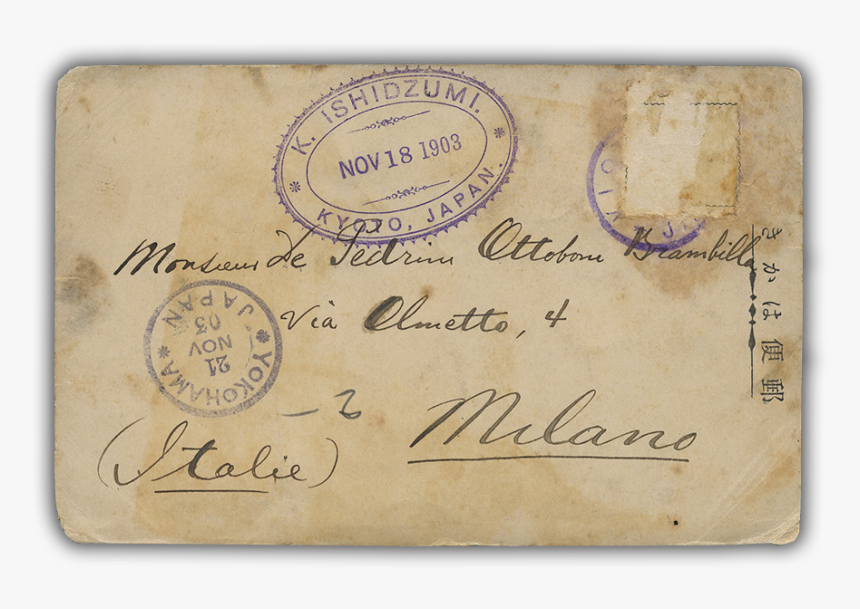 K. ISHIDZUMI.
NOV 18 1903
KYOTO, JAPAN.
Monsieur De Pedrini Ottoboni Brambilla
Via Olmetto, 4
Milano
(Italie)
YOKOHAMA
21
NOV
03
JAPAN
郵便はかき